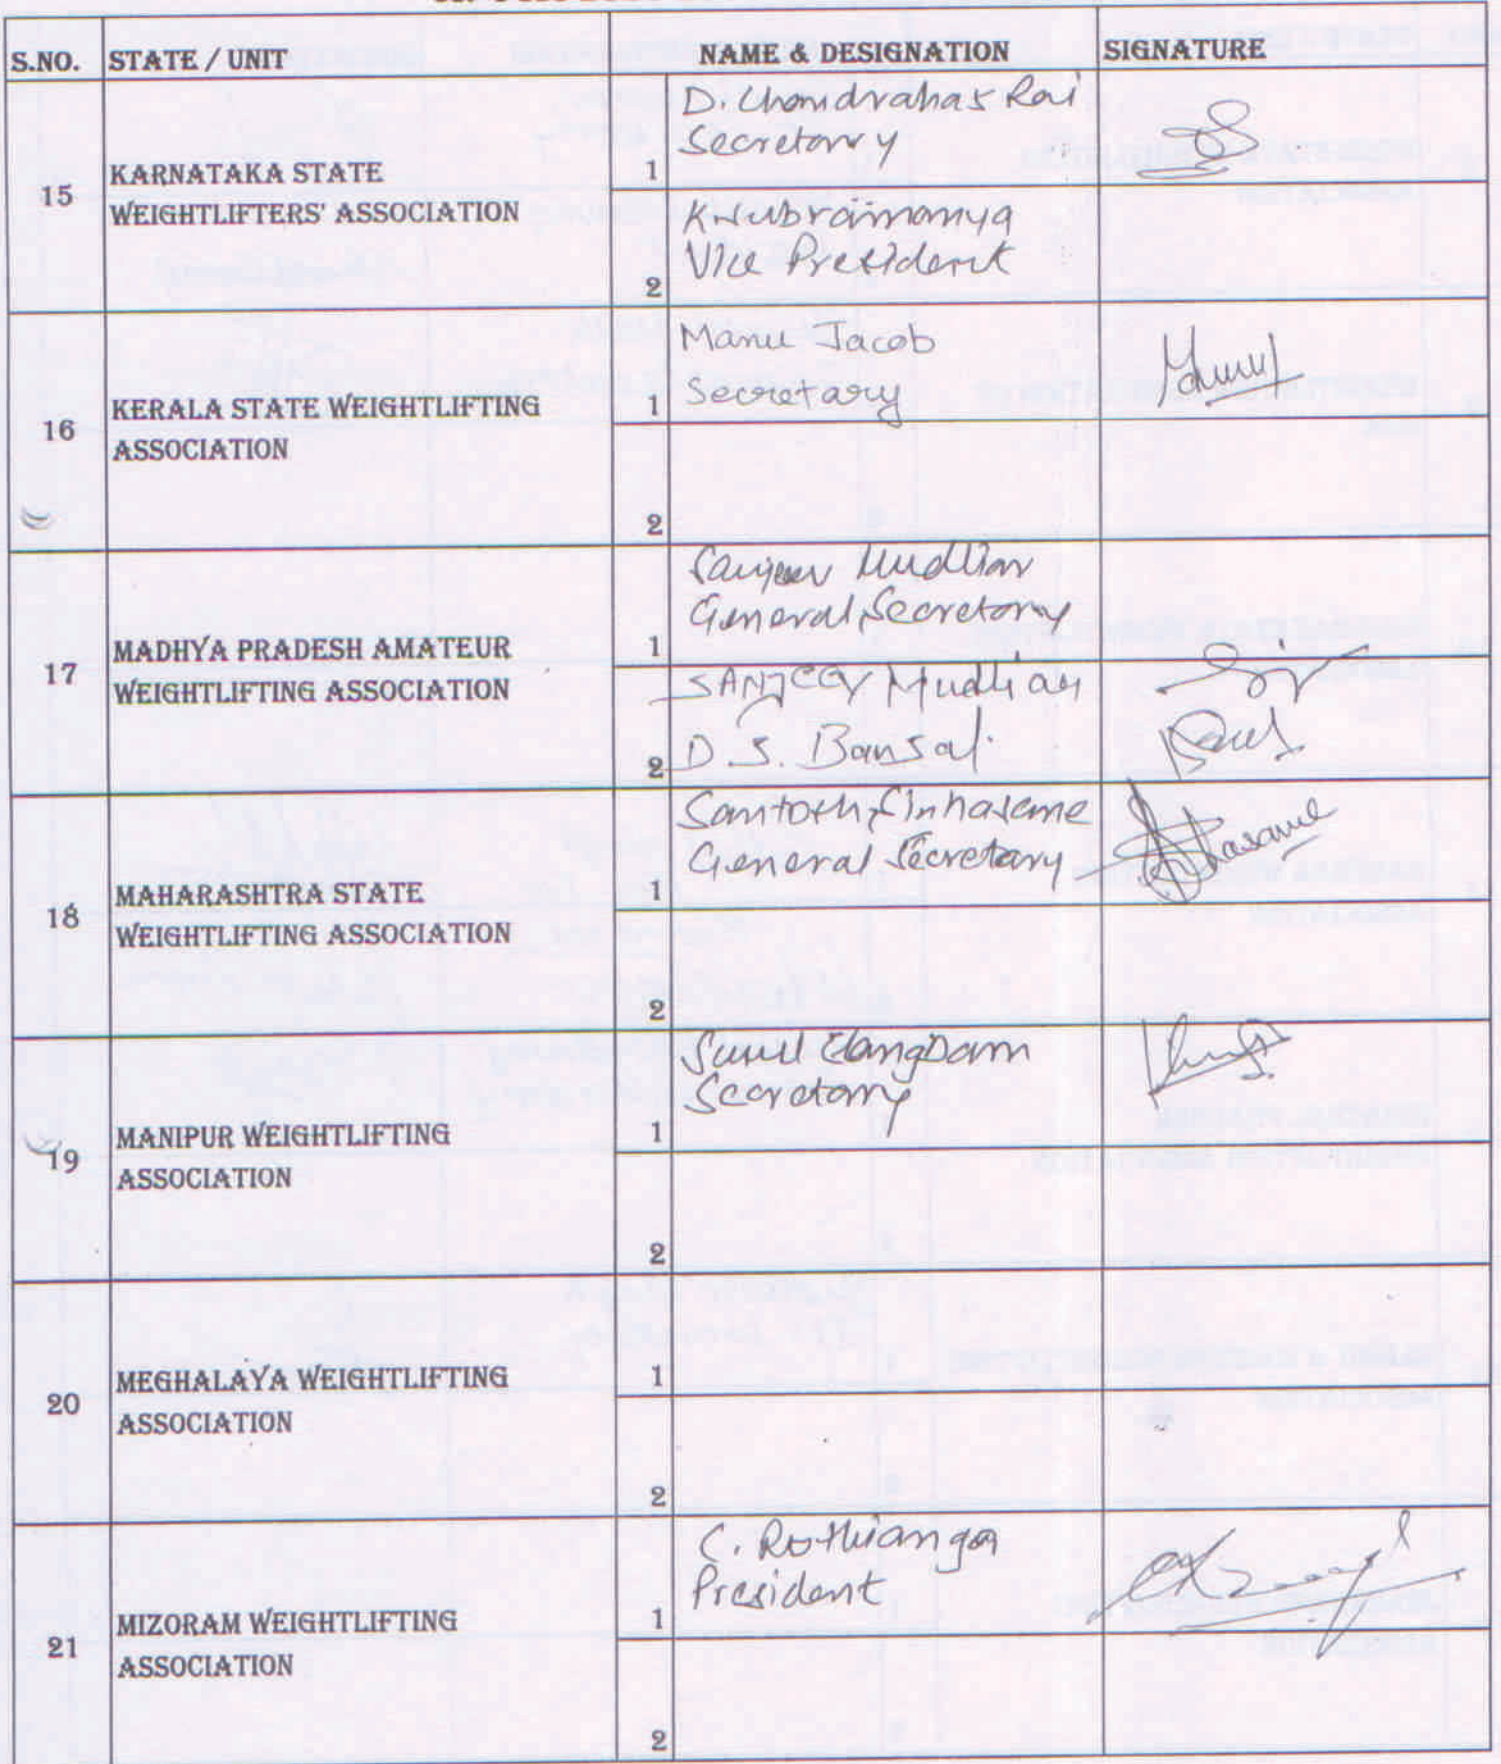 S.NO. STATE / UNIT NAME & DESIGNATION SIGNATURE
15 KARNATAKA STATE
WEIGHTLIFTERS' ASSOCIATION
1 D. Chandrahas Rai
Secretary
2 K. Subramanya
Vice President
16 KERALA STATE WEIGHTLIFTING
ASSOCIATION
1 Manu Jacob
Secretary
2
17 MADHYA PRADESH AMATEUR
WEIGHTLIFTING ASSOCIATION
1 Sanjeev Mudliar
General Secretary
SANJEEV Mudliar
2 D. S. Bansal
18 MAHARASHTRA STATE
WEIGHTLIFTING ASSOCIATION
1 Santosh Sinhasane
General Secretary
2
19 MANIPUR WEIGHTLIFTING
ASSOCIATION
1 Sunil Elangbam
Secretary
2
20 MEGHALAYA WEIGHTLIFTING
ASSOCIATION
1
2
21 MIZORAM WEIGHTLIFTING
ASSOCIATION
1 C. Rothianga
President
2